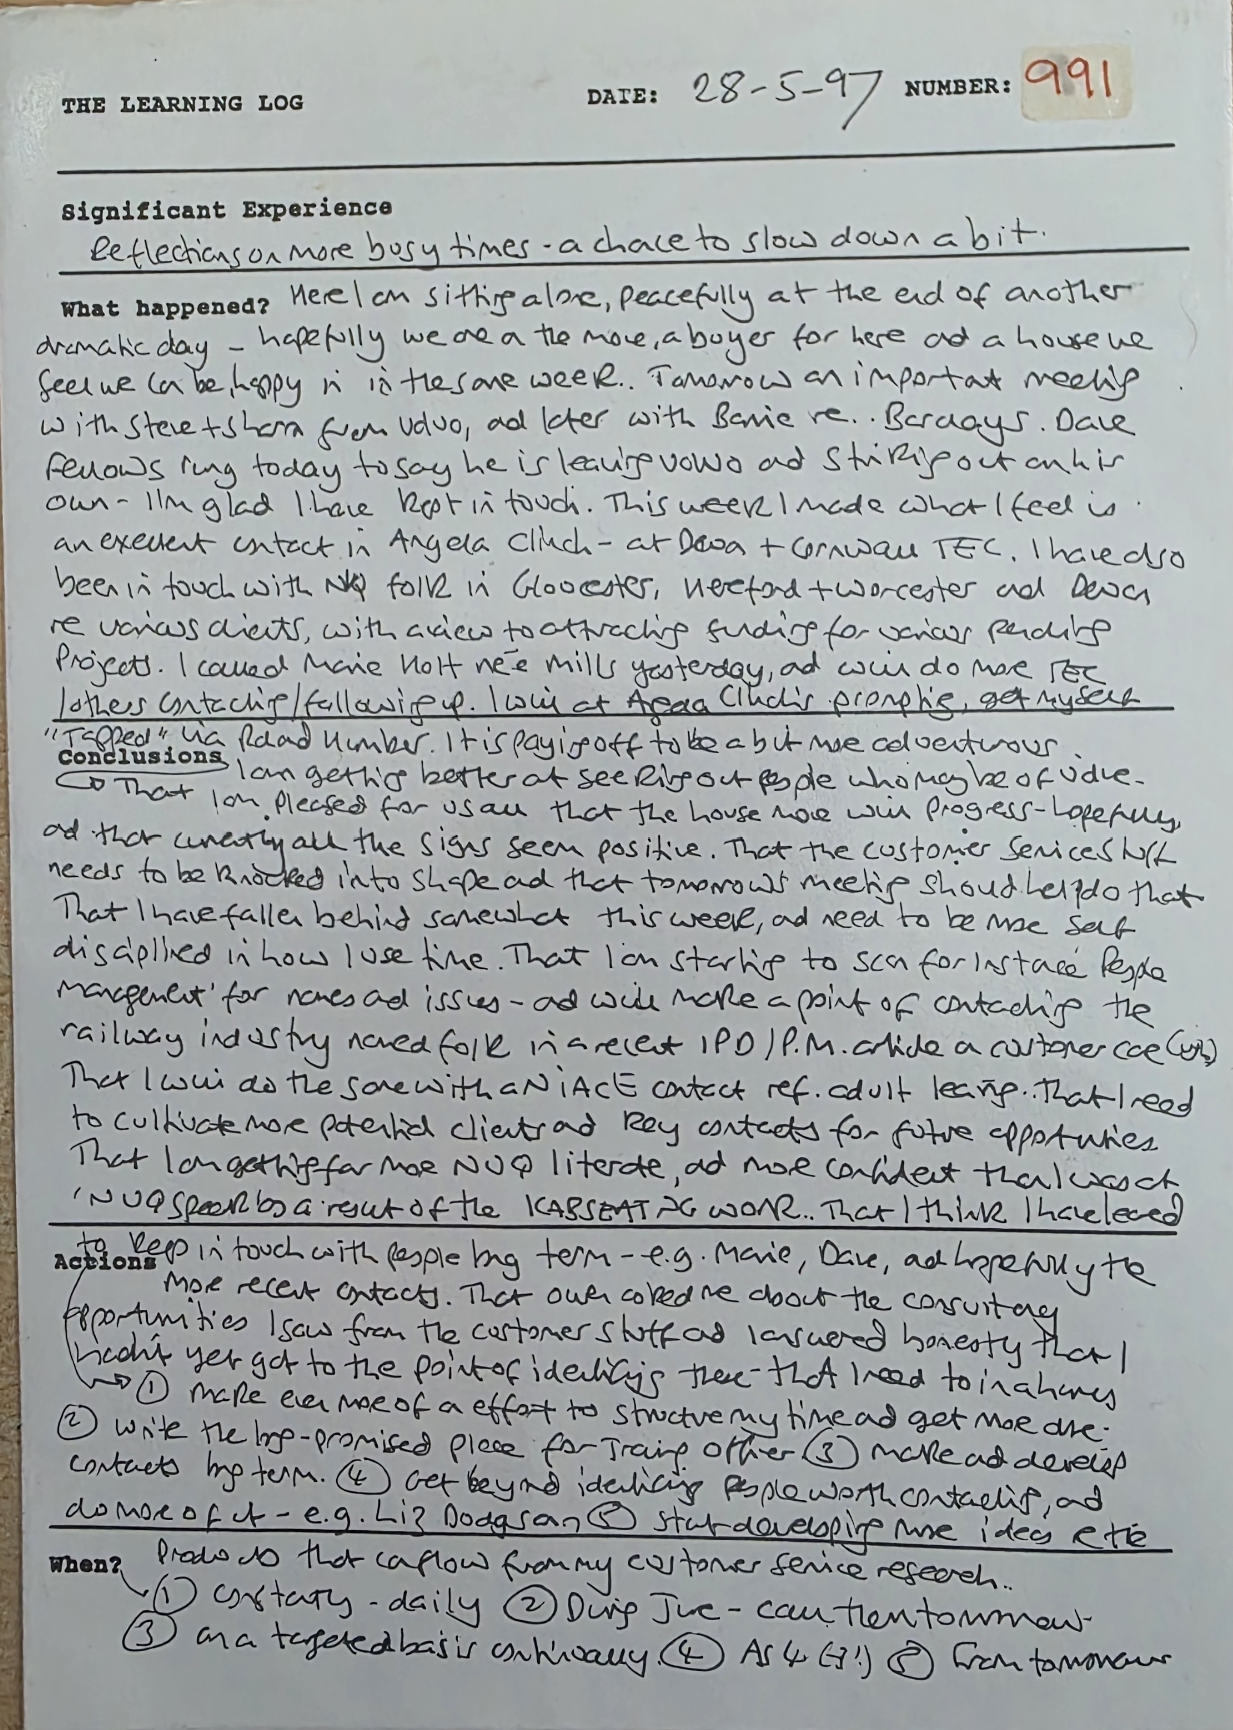 THE LEARNING LOG DATE: 28-5-97 NUMBER: 991
Significant Experience
Reflections on more busy times - a chace to slow down a bit.
What happened? Here I am sitting alone, peacefully at the end of another
dramatic day - hopefully we are on the move, a buyer for here and a house we
feel we can be happy in in the same week.. Tomorrow an important meeting
with Steve + from , and later with Barrie re.. Barclays. Dave
Fellows rung today to say he is leaving and striking out on his
own - I'm glad I have kept in touch. This week I made what I feel is
an excellent contact in Angela Clinch - at Devon + Cornwall TEC. I have also
been in touch with NVQ folk in Gloucester, Hereford + Worcester and Devon
re various clients, with a view to attracting funding for various pending
Projects. I called Marie Holt neé Mills yesterday, and will do more TEC
/others contacting/following up. I will at Angela Clinch's prompting, get myself
"Tapped" via Number. It is paying off to be a bit more adventurous.
Conclusions I am getting better at seeking out people who may be of value.
That I am pleased for us all that the house move will progress - hopefully,
and that currently all the signs seem positive. That the customer services stuff
needs to be knocked into shape and that tomorrow's meeting should help do that
That I have fallen behind somewhat this week, and need to be more self
disciplined in how I use time. That I am starting to scan for instance 'People
Management' for names and issues - and will make a point of contacting the
railway industry named folk in a recent IPD/P.M. article on customer care
That I will do the same with a NIACE contact ref. adult learning.. That I need
to cultivate more potential clients and key contacts for future opportunities
That I am getting far more NVQ literate, and more confident than I was at
'NVQ speak' as a result of the KAB SEATING WORK.. That I think I have learned
to keep in touch with people long term - e.g. Marie, Dave, and hopefully the
Actions more recent contacts. That Owen asked me about the consultancy
opportunities I saw from the customer stuff and I answered honestly that I
hadn't yet got to the point of identifying these - that I need to in a hurry
① make even more of an effort to structure my time and get more done.
② Write the long-promised piece for Training Officer ③ make and develop
contacts long term. ④ Get beyond identifying people worth contacting, and
do more of it - e.g. Liz Dodgson ⑤ start developing more ideas re the
When? Products that can flow from my customer service research..
① Constantly - daily ② During June - call them tomorrow
③ on a targeted basis continually. ④ As 4 (3!) ⑤ From tomorrow